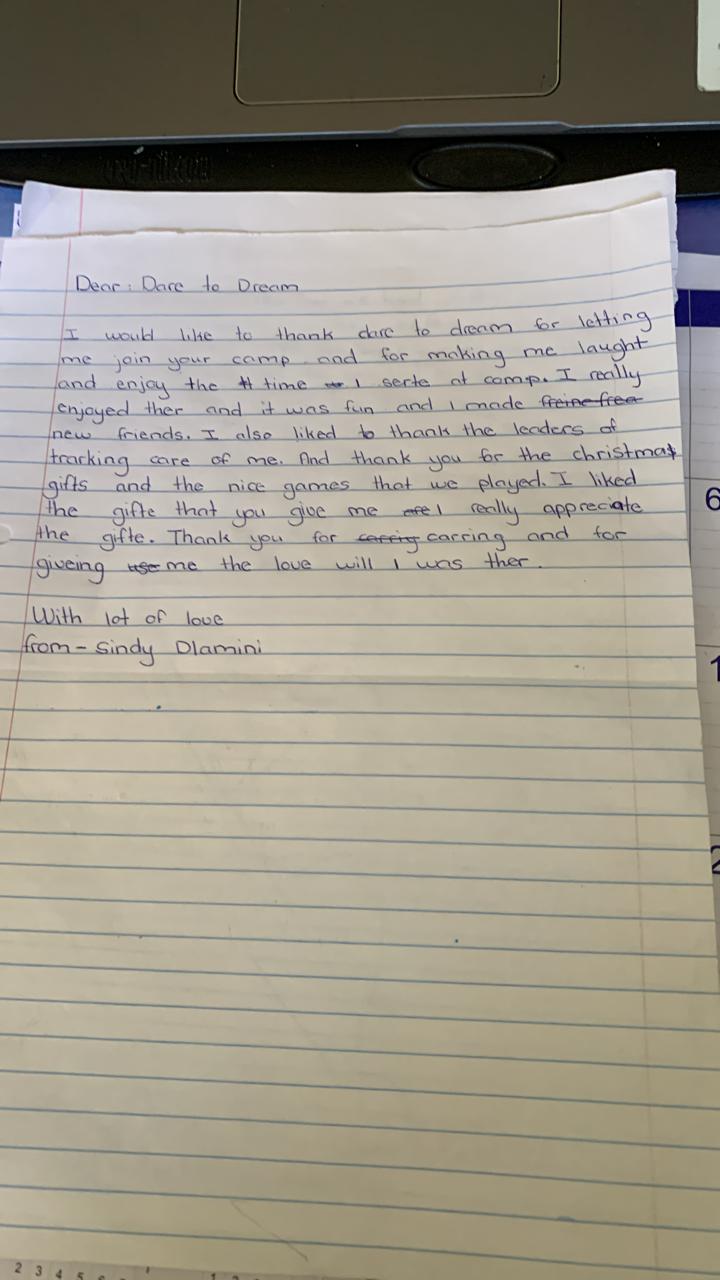 Dear: Dare to Dream
I would like to thank dare to dream for letting
me join your camp and for making me laught
and enjoy the time I serte at camp. I really
enjoyed ther and it was fun and I made
new friends. I also liked to thank the leaders of
tracking care of me. And thank you for the christmas
gifts and the nice games that we played. I liked
the gifte that you give me I really appreciate
the gifte. Thank you for carring and for
giveing me the love will I was ther.
With lot of love
from - Sindy Dlamini
6
1
2
2 3 4 5